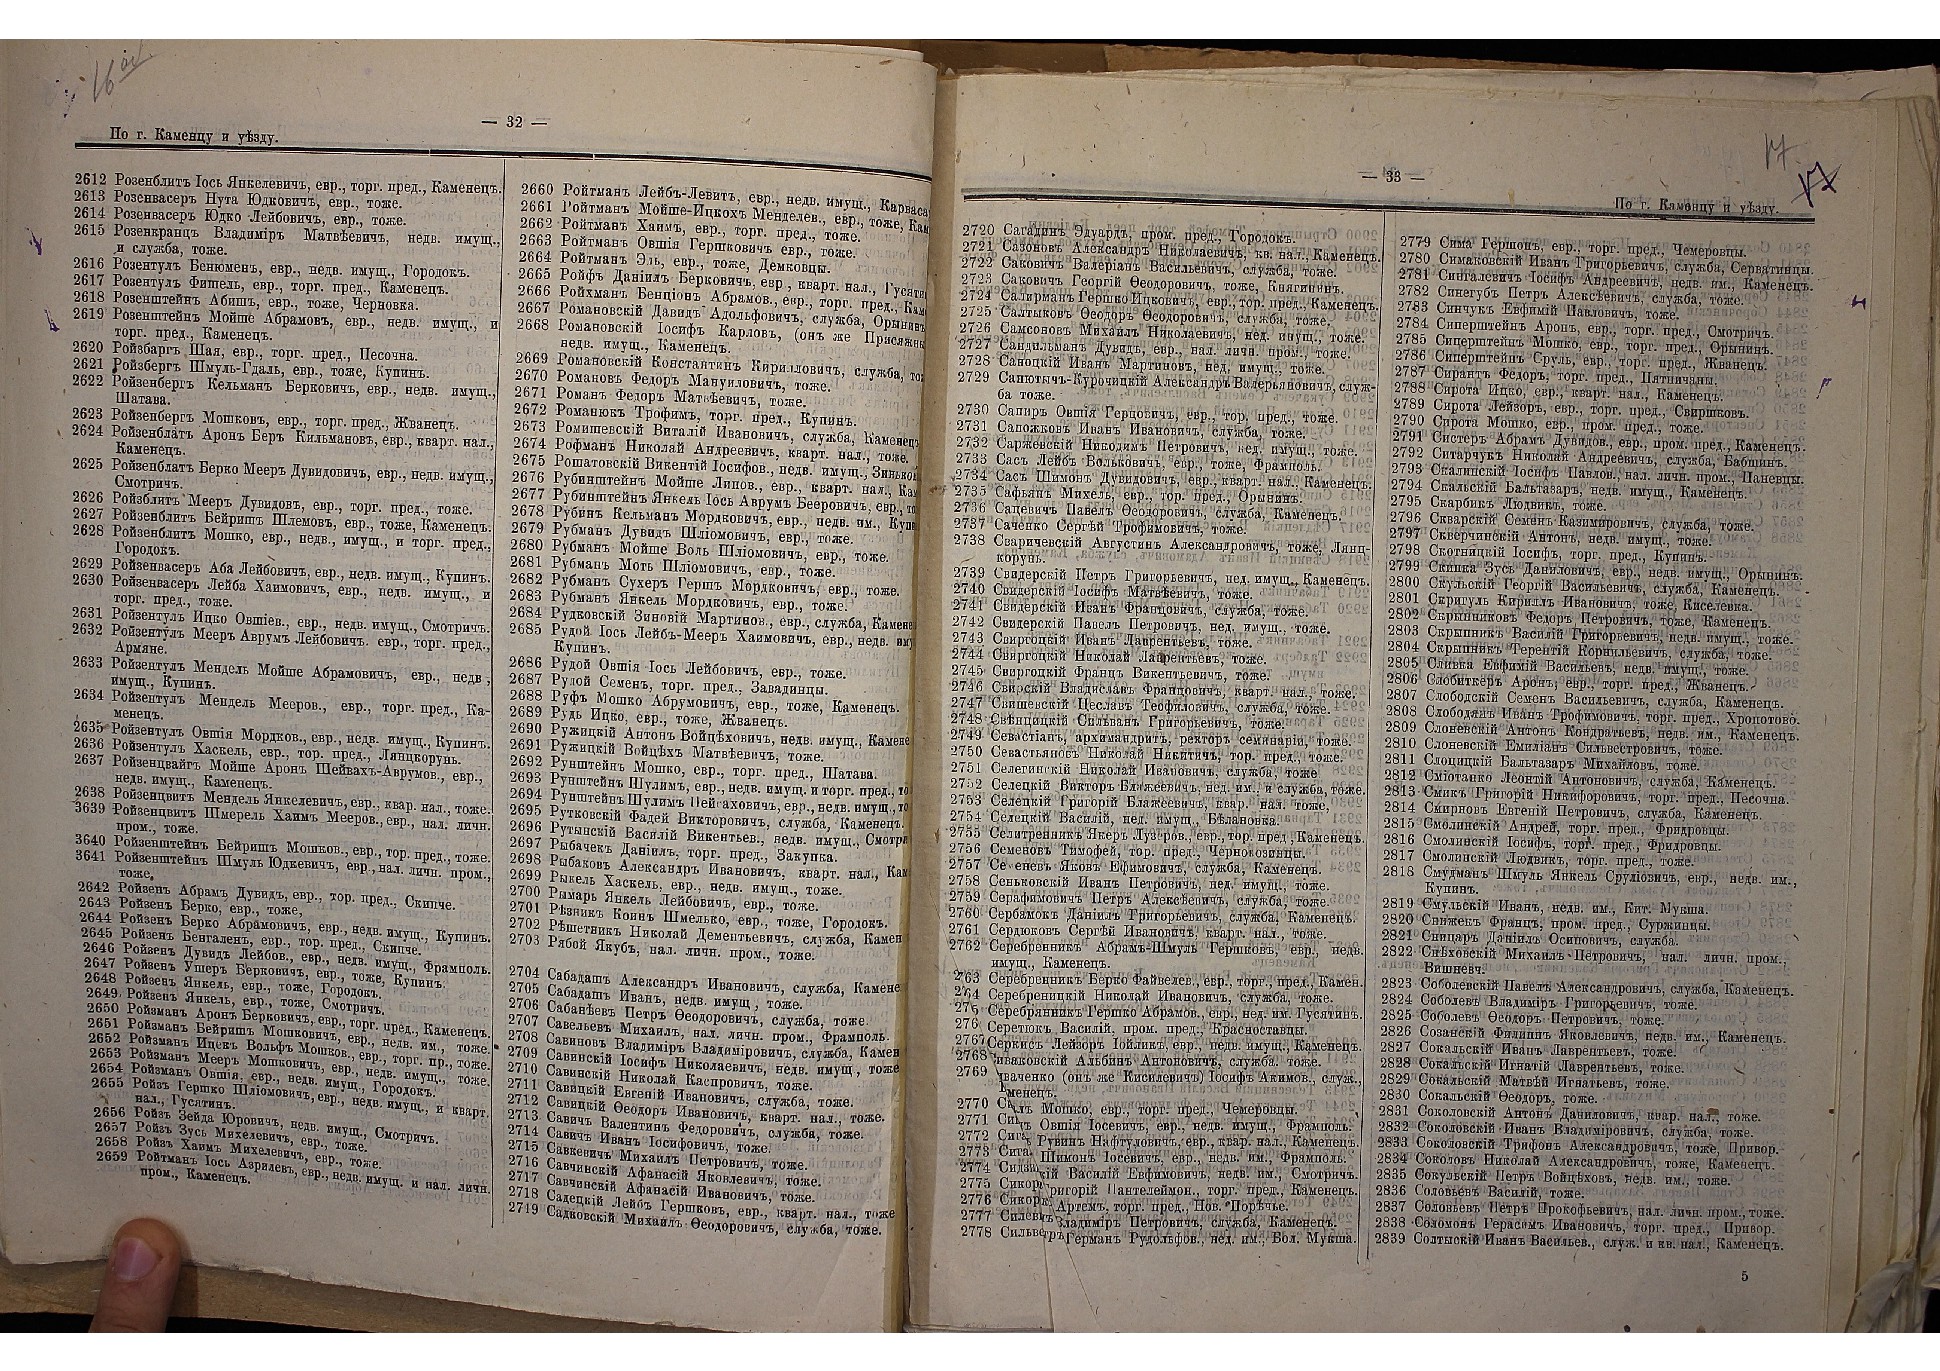 16 об.
— 32 —
По г. Каменцу и уѣзду.
2612 Розенблитъ Іось Янкелевичъ, евр., торг. пред., Каменецъ.
2613 Розенвасеръ Нута Юдковичъ, евр., тоже.
2614 Розенвасеръ Юдко Лейбовичъ, евр., тоже.
2615 Розенкранцъ Владиміръ Матвѣевичъ, недв. имущ.,
и служба, тоже.
2616 Розентулъ Бенюменъ, евр., недв. имущ., Городокъ.
2617 Розентулъ Фишель, евр., торг. пред., Каменецъ.
2618 Розенштейнъ Абишъ, евр., тоже, Черновка.
2619 Розенштейнъ Мойше Абрамовъ, евр., недв. имущ., и
торг. пред., Каменецъ.
2620 Ройзбаргъ Шая, евр., торг. пред., Песочна.
2621 Ройзбергъ Шмуль-Гдаль, евр., тоже, Купинъ.
2622 Ройзенбергъ Кельманъ Берковичъ, евр., недв. имущ.,
Шатава.
2623 Ройзенбергъ Мошковъ, евр., торг. пред., Жванецъ.
2624 Ройзенблатъ Аронъ Беръ Кильмановъ, евр., кварт. нал.,
Каменецъ.
2625 Ройзенблатъ Берко Мееръ Дувидовичъ, евр., недв. имущ.,
Смотричъ.
2626 Ройзблитъ Мееръ Дувидовъ, евр., торг. пред., тоже.
2627 Ройзенблитъ Бейришъ Шлемовъ, евр., тоже, Каменецъ.
2628 Ройзенблитъ Мошко, евр., недв., имущ., и торг. пред.,
Городокъ.
2629 Ройзенвасеръ Аба Лейбовичъ, евр., недв. имущ., Купинъ.
2630 Ройзенвасеръ Лейба Хаимовичъ, евр., недв. имущ., и
торг. пред., тоже.
2631 Ройзентулъ Ицко Овшіев., евр., недв. имущ., Смотричъ.
2632 Ройзентулъ Мееръ Аврумъ Лейбовичъ. евр., торг. пред.,
Армяне.
2633 Ройзентулъ Мендель Мойше Абрамовичъ, евр., недв.,
имущ., Купинъ.
2634 Ройзентулъ Мендель Мееров., евр., торг. пред., Ка-
менецъ.
2635 Ройзентулъ Овшія Мордков., евр., недв. имущ., Купинъ.
2636 Ройзентулъ Хаскель, евр., тор. пред., Лянцкорунь.
2637 Ройзенцвайгъ Мойше Аронъ Шейвахъ-Аврумов., евр.,
недв. имущ., Каменецъ.
2638 Ройзенцвитъ Мендель Янкелевичъ, евр., квар. нал., тоже.
3639 Ройзенцвитъ Шмерель Хаимъ Мееров., евр., нал. личн.
пром., тоже.
3640 Ройзенштейнъ Бейришъ Мошков., евр., тор. пред., тоже.
3641 Ройзенштейнъ Шмуль Юдкевичъ, евр., нал. личн. пром.,
тоже.
2642 Ройзенъ Абрамъ Дувидъ, евр., тор. пред., Скипче.
2643 Ройзенъ Берко, евр., тоже,
2644 Ройзенъ Берко Абрамовичъ, евр., недв. имущ., Купинъ.
2645 Ройзенъ Бенгаленъ, евр., тор. пред., Скипче.
2646 Ройзенъ Дувидъ Лейбов., евр., недв. имущ., Фрамполь.
2647 Ройзенъ Ушеръ Берковичъ, евр., тоже, Купинъ.
2648 Ройзенъ Янкель, евр., тоже, Городокъ.
2649 Ройзенъ Янкель, евр., тоже, Смотричъ.
2650 Ройзманъ Аронъ Берковичъ, евр., торг. пред., Каменецъ.
2651 Ройзманъ Бейришъ Мошковичъ, евр., недв. им., тоже.
2652 Ройзманъ Ицекъ Вольфъ Мошков., евр., торг. пр., тоже.
2653 Ройзманъ Мееръ Мошковичъ, евр., недв. имущ., тоже.
2654 Ройзманъ Овшія, евр., недв. имущ., Городокъ.
2655 Ройзъ Гершко Шліомовичъ, евр., недв. имущ., и кварт.
нал., Гусятинъ.
2656 Ройзъ Зейда Юровичъ, недв. имущ., Смотричъ.
2657 Ройзъ Зусь Михелевичъ, евр., тоже.
2658 Ройзъ Хаимъ Михелевичъ, евр., тоже.
2659 Ройтманъ Іось Азрилевъ, евр., недв. имущ. и нал. личн.
пром., Каменецъ.
2660 Ройтманъ Лейбъ-Левитъ, евр., недв. имущ., Карваса
2661 Ройтманъ Мойше-Ицкохъ Менделев., евр., тоже, Кам
2662 Ройтманъ Хаимъ, евр., торг. пред., тоже.
2663 Ройтманъ Овшія Гершковичъ евр., тоже.
2664 Ройтманъ Эль, евр., тоже, Демковцы.
2665 Ройфъ Даніилъ Берковичъ, евр., кварт. нал., Гусяти
2666 Ройхманъ Бенціонъ Абрамов., евр., торг. пред., Кам
2667 Романовскій Давидъ Адольфовичъ, служба, Орынинъ
2668 Романовскій Іосифъ Карловъ, (онъ же Присяжн
недв. имущ., Каменецъ.
2669 Романовскій Константинъ Кирилловичъ, служба, то
2670 Романовъ Федоръ Мануиловичъ, тоже.
2671 Романъ Федоръ Матвѣевичъ, тоже.
2672 Романюкъ Трофимъ, торг. пред., Купинъ.
2673 Ромишевскій Виталій Ивановичъ, служба, Каменецъ
2674 Рофманъ Николай Андреевичъ, кварт. нал., тоже.
2675 Рошатовскій Викентій Іосифов., недв. имущ., Зиньков
2676 Рубинштейнъ Мойше Липов., евр., кварт. нал., Кам
2677 Рубинштейнъ Янкель Іось Аврумъ Бееровичъ, евр., то
2678 Рубинъ Кельманъ Мордковичъ, евр., недв. им., Купи
2679 Рубманъ Дувидъ Шліомовичъ, евр., тоже.
2680 Рубманъ Мойше Воль Шліомовичъ, евр., тоже.
2681 Рубманъ Моть Шліомовичъ, евр., тоже.
2682 Рубманъ Сухеръ Гершъ Мордковичъ, евр., тоже.
2683 Рубманъ Янкель Мордковичъ, евр., тоже.
2684 Рудковскій Зиновій Мартинов., евр., служба, Камене
2685 Рудой Іось Лейбъ-Мееръ Хаимовичъ, евр., недв. им
Купинъ.
2686 Рудой Овшія Іось Лейбовичъ, евр., тоже.
2687 Рудой Семенъ, торг. пред., Завадинцы.
2688 Руфъ Мошко Абрумовичъ, евр., тоже, Каменецъ.
2689 Рудь Ицко, евр., тоже, Жванецъ.
2690 Ружицкій Антонъ Войцѣховичъ, недв. имущ., Камене
2691 Ружицкій Войцѣхъ Матвѣевичъ, тоже.
2692 Рунштейнъ Мошко, евр., торг. пред., Шатава.
2693 Рунштейнъ Шулимъ, евр., недв. имущ. и торг. пред., то
2694 Рунштейнъ Шулимъ Пейсаховичъ, евр., недв. имущ., то
2695 Рутковскій Фадей Викторовичъ, служба, Каменецъ.
2696 Рутынскій Василій Викентьев., недв. имущ., Смотри
2697 Рыбачекъ Даніилъ, торг. пред., Закупка.
2698 Рыбаковъ Александръ Ивановичъ, кварт. нал., Кам
2699 Рыкель Хаскель, евр., недв. имущ., тоже.
2700 Рымарь Янкель Лейбовичъ, евр., тоже.
2701 Рѣзникъ Коинъ Шмелько, евр., тоже, Городокъ.
2702 Рѣшетникъ Николай Дементьевичъ, служба, Камен
2703 Рябой Якубъ, нал. личн. пром., тоже.
2704 Сабадашъ Александръ Ивановичъ, служба, Камене
2705 Сабадашъ Иванъ, недв. имущ., тоже.
2706 Сабанѣевъ Петръ Ѳеодоровичъ, служба, тоже.
2707 Савельевъ Михаилъ, нал. личн. пром., Фрамполь.
2708 Савиновъ Владиміръ Владиміровичъ, служба, Камен
2709 Савинскій Іосифъ Николаевичъ, недв. имущ., тоже
2710 Савинскій Николай Каспровичъ, тоже.
2711 Савицкій Евгеній Ивановичъ, служба, тоже.
2712 Савицкій Ѳеодоръ Ивановичъ, кварт. нал., тоже.
2713 Савичъ Валентинъ Федоровичъ, служба, тоже.
2714 Савичъ Иванъ Іосифовичъ, тоже.
2715 Савкевичъ Михаилъ Петровичъ, тоже.
2716 Савчинскій Афанасій Яковлевичъ, тоже.
2717 Савчинскій Афанасій Ивановичъ, тоже.
2718 Садецкій Лейбъ Гершковъ, евр., кварт. нал., тоже
2719 Садковскій Михаилъ Ѳеодоровичъ, служба, тоже.
17
17
— 33 —
По г. Каменцу и уѣзду.
2720 Сагадинъ Эдуардъ, пром. пред., Городокъ.
2721 Сазоновъ Александръ Николаевичъ, кв. нал., Каменецъ.
2722 Саковичъ Валеріанъ Васильевичъ, служба, тоже.
2723 Саковичъ Георгій Ѳеодоровичъ, тоже, Княгининъ.
2724 Салирманъ Гершко Ицковичъ, евр., тор. пред., Каменецъ.
2725 Салтыковъ Ѳеодоръ Ѳеодоровичъ, служба, тоже.
2726 Самсоновъ Михаилъ Николаевичъ, нед. имущ., тоже.
2727 Сандильманъ Дувидъ, евр., нал. личн. пром., тоже.
2728 Саноцкій Иванъ Мартиновъ, нед. имущ., тоже.
2729 Сапютычъ-Курочицкій Александръ Валерьяновичъ, служ-
ба тоже.
2730 Сапиръ Овшія Герцовичъ, евр., тор. пред., тоже.
2731 Сапожковъ Иванъ Ивановичъ, служба, тоже.
2732 Саржевскій Никодимъ Петровичъ, нед. имущ., тоже.
2733 Сасъ Лейбъ Вольковичъ, евр., тоже, Фрамполь.
2734 Сасъ Шимонъ Дувидовичъ, евр., кварт. нал., Каменецъ.
2735 Сафьянъ Михель, евр., тор. пред., Орынинъ.
2736 Сацевичъ Павелъ Ѳеодоровичъ, служба, Каменецъ.
2737 Саченко Сергѣй Трофимовичъ, тоже.
2738 Сваричевскій Августинъ Александровичъ, тоже, Лянц-
корунь.
2739 Свидерскій Петръ Григорьевичъ, нед. имущ., Каменецъ.
2740 Свидерскій Іосифъ Матвѣевичъ, тоже.
2741 Свидерскій Иванъ Францовичъ, служба, тоже.
2742 Свидерскій Павелъ Петровичъ, нед. имущ., тоже.
2743 Свиргоцкій Иванъ Лаврентьевъ, тоже.
2744 Свиргоцкій Николай Лаврентьевъ, тоже.
2745 Свиргоцкій Францъ Викентьевичъ, тоже.
2746 Свирскій Владиславъ Францовичъ, кварт. нал., тоже.
2747 Свишевскій Цеславъ Теофиловичъ, служба, тоже.
2748 Свѣнцицкій Сильванъ Григорьевичъ, тоже.
2749 Севастіанъ, архимандритъ, ректоръ семинаріи, тоже.
2750 Севастьяновъ Николай Никитичъ, тор. пред., тоже.
2751 Селегинскій Николай Ивановичъ, служба, тоже
2752 Селецкій Викторъ Блажеевичъ, нед. им., и служба, тоже.
2753 Селецкій Григорій Блажеевичъ, квар. нал. тоже,
2754 Селецкій Василій, нед. имущ., Бѣлановка.
2755 Селитренникъ Якеръ Лузеров., евр., тор. пред., Каменецъ.
2756 Семеновъ Тимофей, тор. пред., Чернокозинцы.
2757 Семеневъ Яковъ Ефимовичъ, служба, Каменецъ.
2758 Сеньковскій Иванъ Петровичъ, нед. имущ., тоже.
2759 Серафимовичъ Петръ Алексѣевичъ, служба, тоже.
2760 Сербамокъ Даніилъ Григорьевичъ, служба, Каменецъ.
2761 Сердюковъ Сергѣй Ивановичъ, кварт. нал., тоже.
2762 Серебренникъ Абрамъ-Шмуль Гершковъ, евр., недв.
имущ., Каменецъ.
763 Серебренникъ Берко Файвелев., евр., торг., пред., Камен.
264 Серебреницкій Николай Ивановичъ, служба, тоже.
276 Серебрянникъ Гершко Абрамов., евр., нед. им. Гусятинъ.
276 Серетюкъ, Василій, пром. пред., Красноставцы.
2767 Серкисъ Лейзоръ Іойликъ, евр., недв. имущ., Каменецъ.
2768 иваковскій Альбанъ Антоновичъ, служба, тоже.
2769 иваченко (онъ же Кисилевичъ) Іосифъ Акимов., служ.,
менецъ.
2770 С ль Мошко, евр., торг. пред., Чемеровцы.
2771 Си ъ Овшія Іосевичъ, евр., недв. имущ., Фрамполь.
2772 Сиг Рувинъ Нафтуловичъ, евр., квар. нал., Каменецъ.
2773 Сига Шимонъ Іосевичъ, евр., недв. им., Фрамполь.
2774 Сидз кій Василій Евфимовичъ, недв. им., Смотричъ.
2775 Сикор ригорій Пантелеймон., торг. пред., Каменецъ.
2776 Сикор Артемъ, торг. пред., Нов. Порѣчье.
2777 Силев Владиміръ Петровичъ, служба, Каменецъ.
2778 Сильверъ Германъ Рудольфов., нед. им., Бол. Мукша.
2779 Сима Гершонъ, евр., торг. пред., Чемеровцы.
2780 Симаковскій Иванъ Григорьевичъ, служба, Серватинцы.
2781 Сингалевичъ Іосифъ Андреевичъ, недв. им., Каменецъ.
2782 Синегубъ Петръ Алексѣевичъ, служба, тоже.
2783 Синчукъ Евфимій Павловичъ, тоже.
2784 Сиперштейнъ Аронъ, евр., торг. пред., Смотричъ.
2785 Сиперштейнъ Мошко, евр., торг. пред., Орынинъ.
2786 Сиперштейнъ Сруль, евр., торг. пред., Жванецъ.
2787 Сирантъ Федоръ, торг. пред., Пятничаны.
2788 Сирота Ицко, евр., кварт. нал., Каменецъ.
2789 Сирота Лейзоръ, евр., торг. пред., Свиршковъ.
2790 Сирота Мошко, евр., пром. пред., тоже.
2791 Систеръ Абрамъ Дувидов., евр., пром. пред., Каменецъ.
2792 Ситарчукъ Николай Андреевичъ, служба, Бабшинъ.
2793 Скалинскій Іосифъ Павлов., нал. личн. пром., Паневцы.
2794 Скальскій Бальтазаръ, недв. имущ., Каменецъ.
2795 Скарбикъ Людвикъ, тоже.
2796 Скварскій Семенъ Казимировичъ, служба, тоже.
2797 Скверчинскій Антонъ, недв. имущ., тоже.
2798 Скотницкій Іосифъ, торг. пред., Купинъ.
2799 Скипка Зусь Даниловичъ, евр., недв. имущ., Орынинъ.
2800 Скульскій Георгій Васильевичъ, служба, Каменецъ.
2801 Скригуль Кириллъ Ивановичъ, тоже, Киселевка.
2802 Скрынниковъ Федоръ Петровичъ, тоже, Каменецъ.
2803 Скрыпникъ Василій Григорьевичъ, недв. имущ., тоже.
2804 Скрыпникъ Терентій Корнильевичъ, служба, тоже.
2805 Сливка Евфимій Васильев., недв. имущ., тоже.
2806 Слобиткеръ Аронъ, евр., торг. пред., Жванецъ.
2807 Слободскій Семенъ Васильевичъ, служба, Каменецъ.
2808 Слободянъ Иванъ Трофимовичъ, торг. пред., Хропотово.
2809 Слоневскій Антонъ Кондратьевъ, недв. им., Каменецъ.
2810 Слоневскій Емиліанъ Сильвестровичъ, тоже.
2811 Слоцицкій Бальтазаръ Михайловъ, тоже.
2812 Сміотанко Леонтій Антоновичъ, служба, Каменецъ.
2813 Смикъ Григорій Никифоровичъ, торг. пред., Песочна.
2814 Смирновъ Евгеній Петровичъ, служба, Каменецъ.
2815 Смолинскій Андрей, торг. пред., Фридровцы.
2816 Смолинскій Іосифъ, торг. пред., Фридровцы.
2817 Смолинскій Людвикъ, торг. пред., тоже.
2818 Смудманъ Шмуль Янкель Сруліовичъ, евр., недв. им.,
Купинъ.
2819 Смульскій Иванъ, недв. им., Кит. Мукша.
2820 Снижекъ Францъ, пром. пред., Суржинцы.
2821 Сницаръ Даніилъ Осиповичъ, служба.
2822 Снѣховскій Михаилъ Петровичъ, нал. личн. пром.,
Вишневч.
2823 Соболевскій Павелъ Александровичъ, служба, Каменецъ.
2824 Соболевъ Владиміръ Григорьевичъ, тоже.
2825 Соболевъ Ѳеодоръ Петровичъ, тоже.
2826 Созанскій Филиппъ Яковлевичъ, недв. им., Каменецъ.
2827 Сокальскій Иванъ Лаврентьевъ, тоже.
2828 Сокальскій Игнатій Лаврентьевъ, тоже.
2829 Сокальскій Матвѣй Игнатьевъ, тоже.
2830 Сокальскій Ѳеодоръ, тоже.
2831 Соколовскій Антонъ Даниловичъ, квар. нал., тоже.
2832 Соколовскій Иванъ Владиміровичъ, служба, тоже.
2833 Соколовскій Трифонъ Александровичъ, тоже, Привор.
2834 Соколовъ Николай Александровичъ, тоже, Каменецъ.
2835 Сокульскій Петръ Войцѣховъ, недв. им., тоже.
2836 Соловьевъ Василій, тоже.
2837 Соловьевъ Петръ Прокофьевичъ, нал. личн. пром., тоже.
2838 Соломонъ Герасомъ Ивановичъ, торг. пред., Привор.
2839 Солтыскій Иванъ Васильев., служ. и кв. нал., Каменецъ.
5